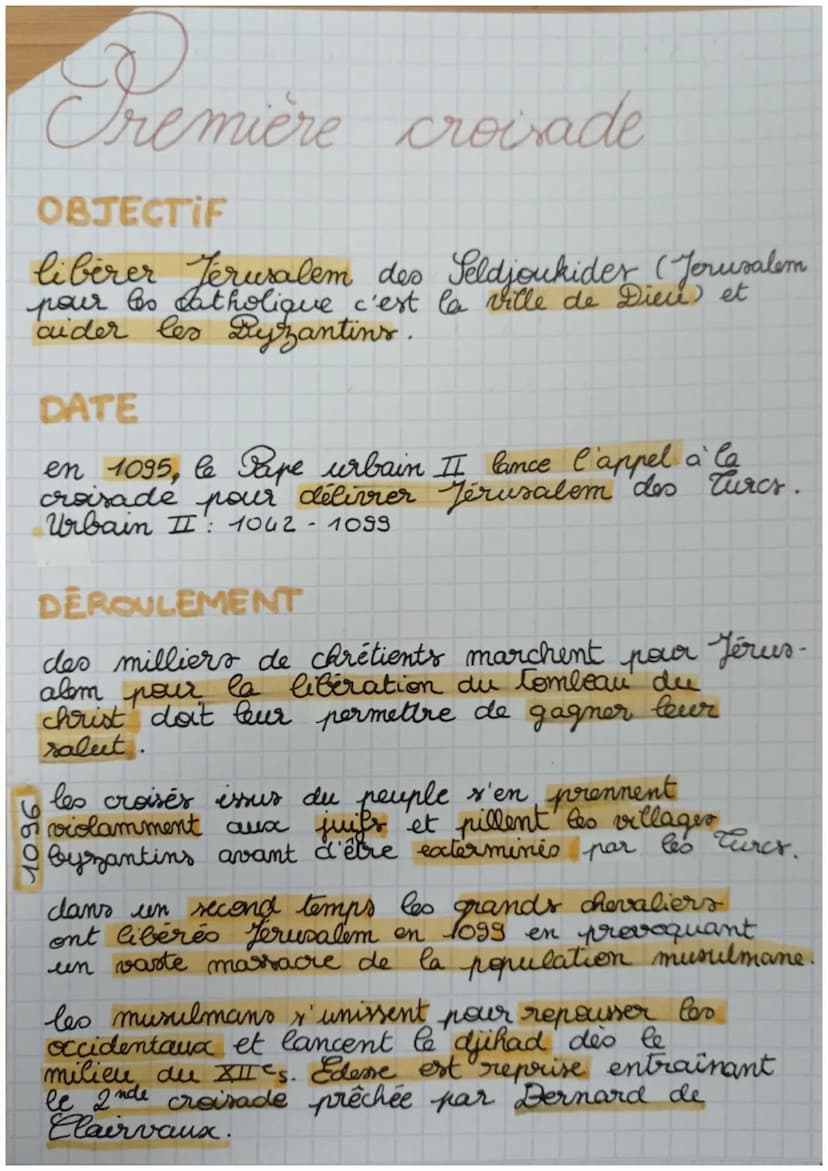 Première croisade
OBJECTIF
libérer Jérusalem des Seldjoukides (Jerusalem
pour les catholique c'est la ville de Dieu) et
aider les Byzantins.
DATE
en 1095, le Pape urbain II lance l'appel à la
croisade pour délivrer Jérusalem des Turcs.
Urbain II : 1042 - 1099
DÉROULEMENT
des milliers de chrétients marchent pour Jérus-
alem pour la libération du Tombeau du
christ doit leur permettre de gagner leur
salut.
1096
les croisés issus du peuple s'en prennent
violamment aux juifs et pillent les villages
byzantins avant d'être exterminés par les Turcs.
dans un second temps les grands chevaliers
ont libérés Jérusalem en 1099 en provoquant
un vaste massacre de la population musulmane.
les musulmans s'unissent pour repousser les
occidentaux et lancent le djihad dès le
milieu du XIIe s. Edesse est reprise entraînant
le 2nde croisade prêchée par Bernard de
Clairvaux.